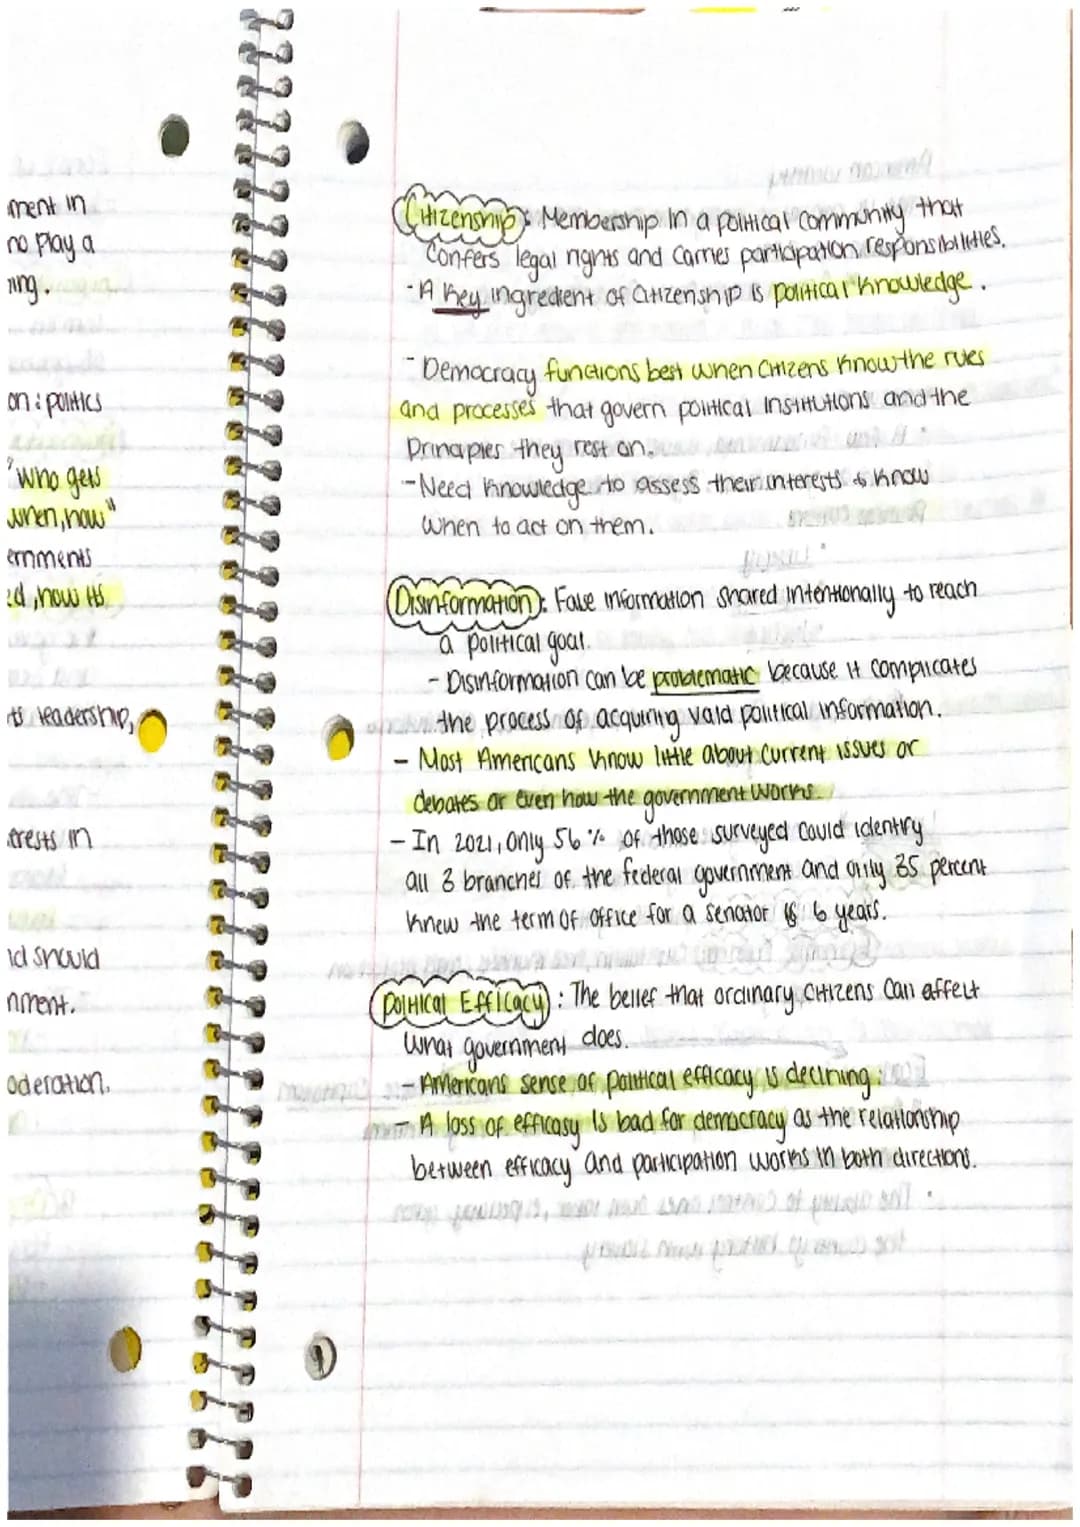 ment in
no play a
ning.
on: politics
"Who gets
when, how"
ernments
ed, how its
ts leadership,
erests in
nd should
nment.
oderation.
Citizenship: Membership in a political community that
confers legal rights and carries participation responsibilities.
- A Key ingredient of citizenship is political knowledge.
- Democracy functions best when citizens know the rules
and processes that govern political institutions and the
principles they rest on.
- Need knowledge to assess their interests & know
when to act on them.
Disinformation: False information shared intentionally to reach
a political goal.
- Disinformation can be problematic because it complicates
the process of acquiring valid political information.
- Most Americans know little about current issues or
debates or even how the government works.
- In 2021, only 56% of those surveyed could identify
all 3 branches of the federal government and only 35 percent
knew the term of office for a senator is 6 years.
Political Efficacy: The belief that ordinary citizens can affect
what government does.
- Americans sense of political efficacy is declining.
- A loss of efficasy is bad for democracy as the relationship
between efficacy and participation works in both directions.